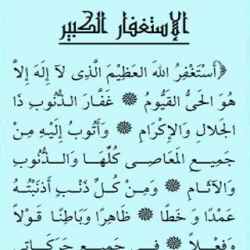 الإستغفار الكبير
﴿أَسْتَغْفِرُ اللهَ الْعَظِيْمَ الَّذِى لَآ إِلَهَ إِلاَّ
هُوَ الْحَيُّ الْقَيُّومُ ۞ غَفَّارَ الذُّنُوبِ ذَا
الْجَلاَلِ وَالإِكْرَامِ ۞ وَأَتُوبُ إِلَيْهِ مِنْ
جَمِيعِ الْمَعَاصِى كُلِّهَا وَالذُّنُوبِ
وَالآثَامِ ۞ وَمِنْ كُلِّ ذَنْبٍ أَذْنَبْتُهُ
عَمْدًا وَ خَطَأً ۞ ظَاهِرًا وَبَاطِنًا قَوْلاً
وَفِعْلاً ۞ فِى جَمِيعِ حَرَكَاتِى